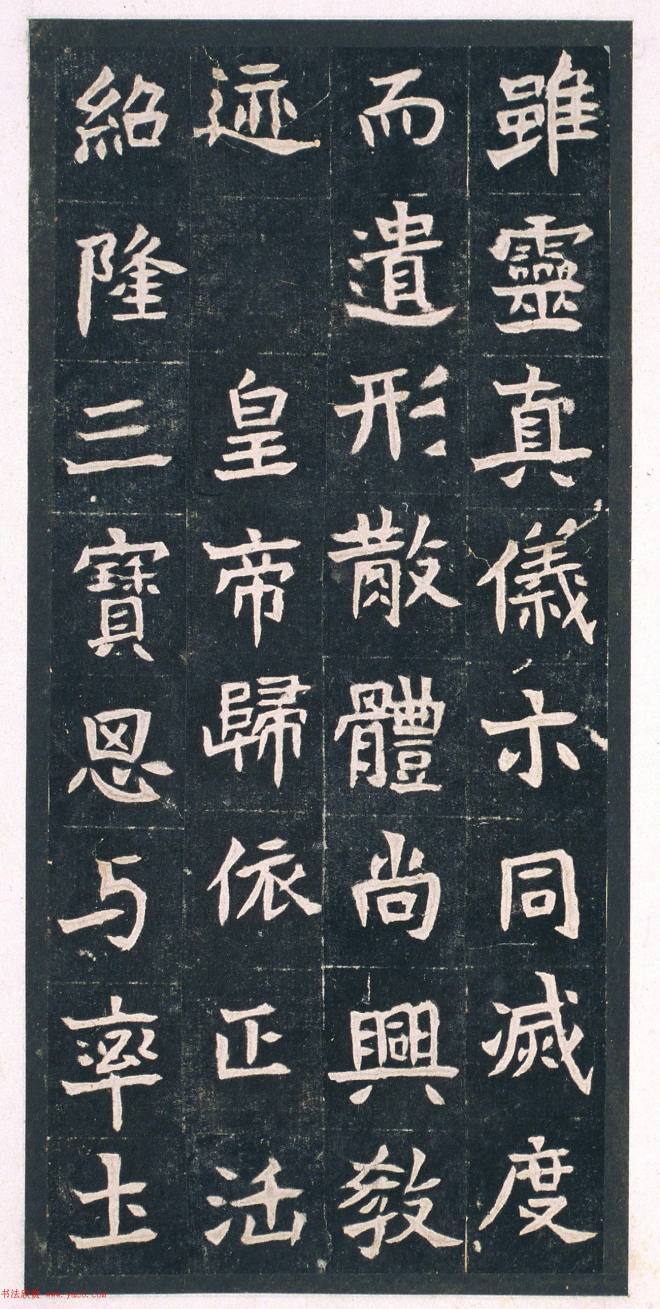 雖靈真儀示同滅度
而遺形散體尚興教
迹 皇帝歸依正法
紹隆三寶思与率土
书法欣赏 www.yac8.com